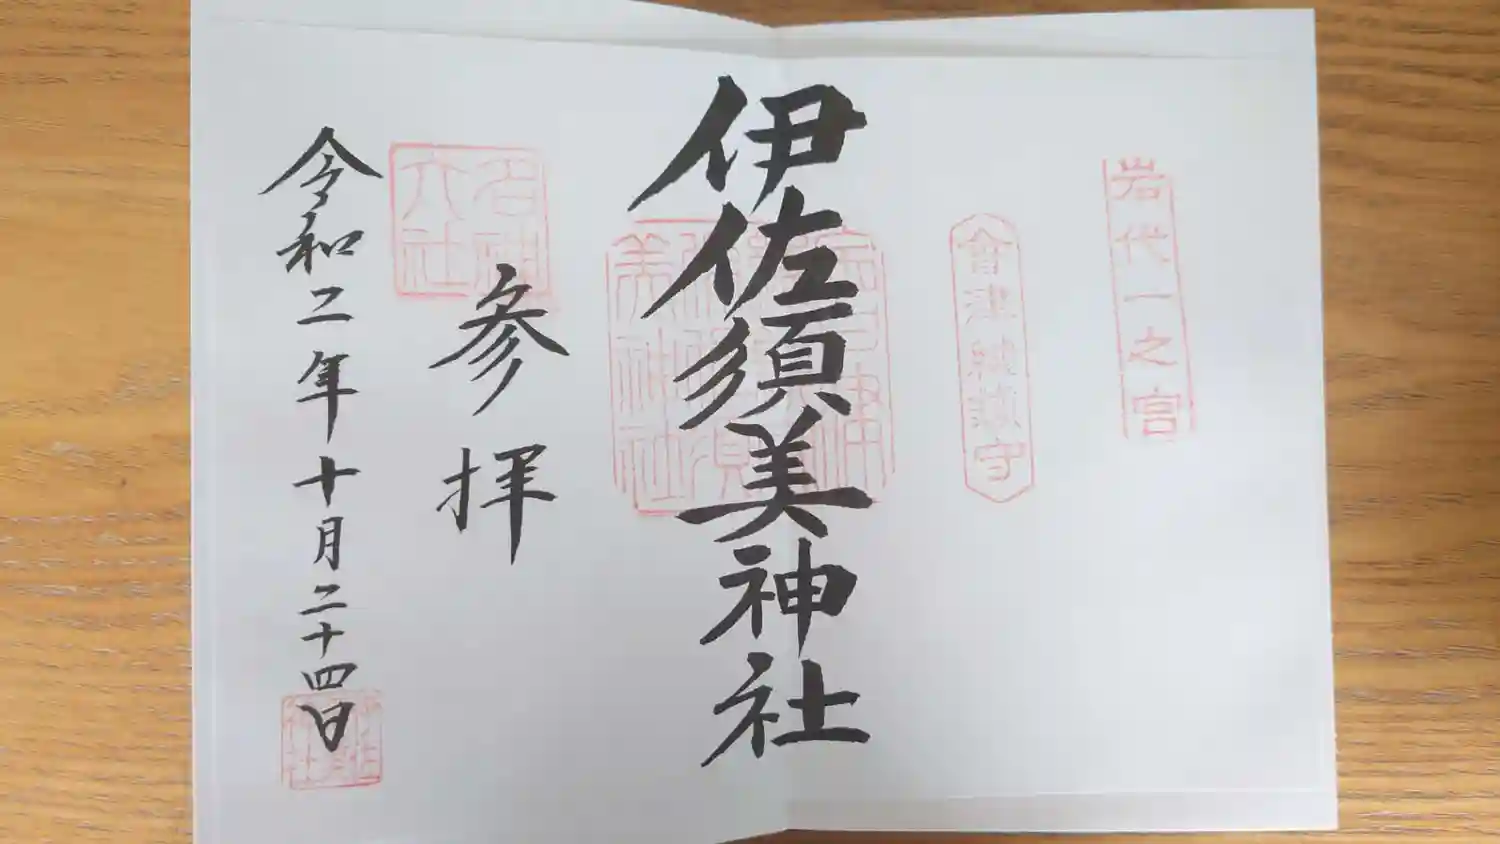 岩代一之宮
會津総鎮守
伊佐須美神社
参拝
名神
大社
令和二年十月二十四日